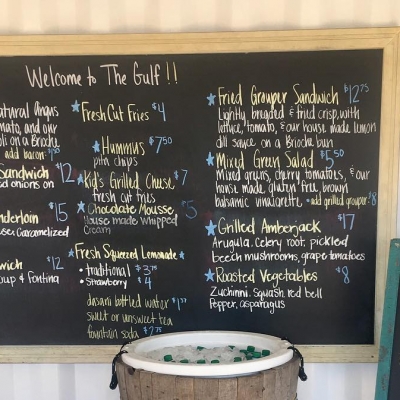 Welcome to The Gulf!!
Natural Angus
and our
on a Brioche
add bacon
Sandwich $12
onions on
$15
Caramelized
$12
& Fontina
Fresh Cut Fries $4
Hummus $7.50
pita chips
Kid's Grilled Cheese $7
fresh cut fries
Chocolate Mousse $5
House made whipped
cream
Fresh Squeezed Lemonade
• traditional $3.75
• Strawberry $4
dasani bottled water
sweet or unsweet tea
fountain soda $2.75
Fried Grouper Sandwich $12.75
Lightly breaded & fried crisp, with
lettuce, tomato, & our house made lemon
dill sauce on a Brioche bun
Mixed Green Salad $5.50
Mixed greens, cherry tomatoes, & our
house made gluten free brown
balsamic vinaigrette. • add grilled grouper $8
Grilled Amberjack $17
Arugula, Celery root, pickled
beech mushrooms, grape tomatoes
Roasted Vegetables $8
Zucchinni, Squash, red bell
Pepper, asparagus